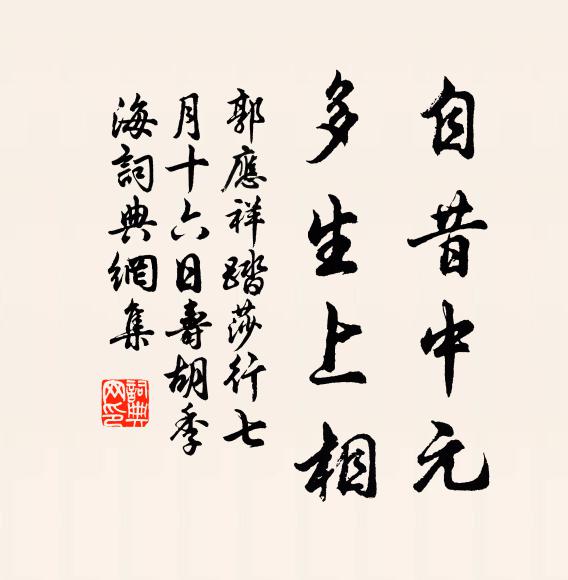 自昔中元
多生上相
郭應祥踏莎行七
月十六日壽胡季
海詞典網集
詞典网印